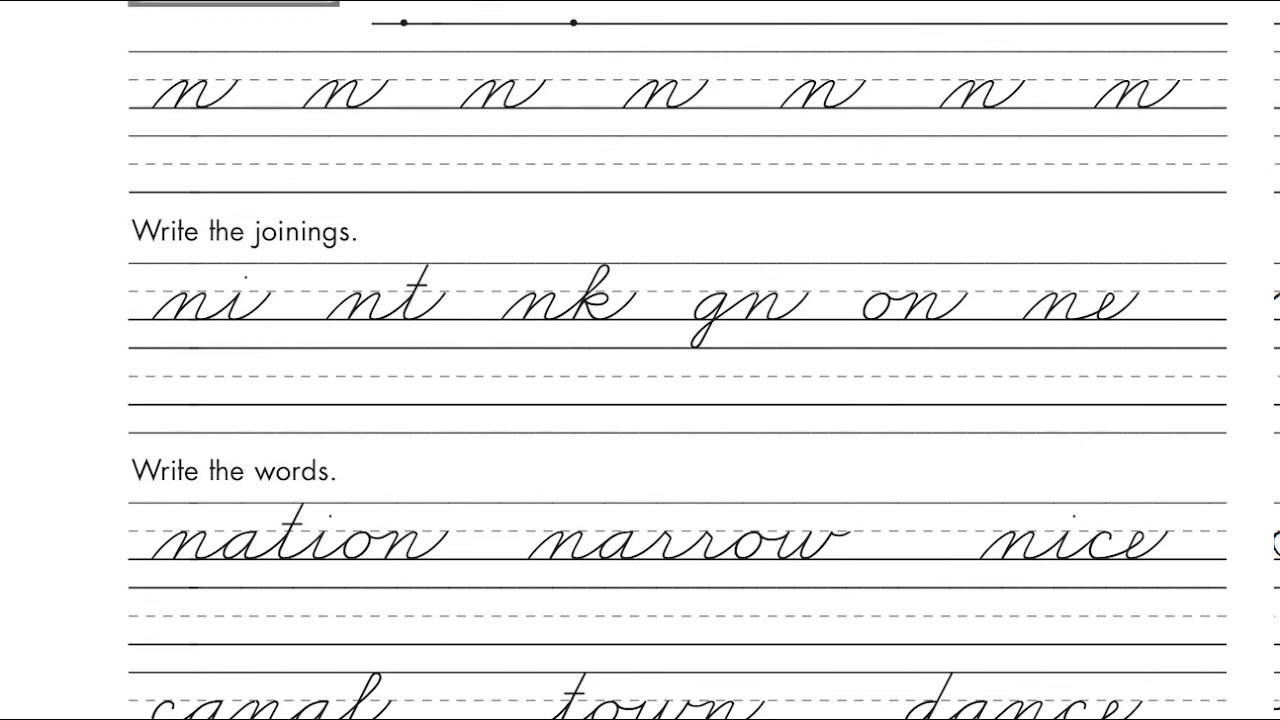 n n n n n n n
Write the joinings.
ni nt nk gn on ne
Write the words.
nation narrow nice
canal town dance